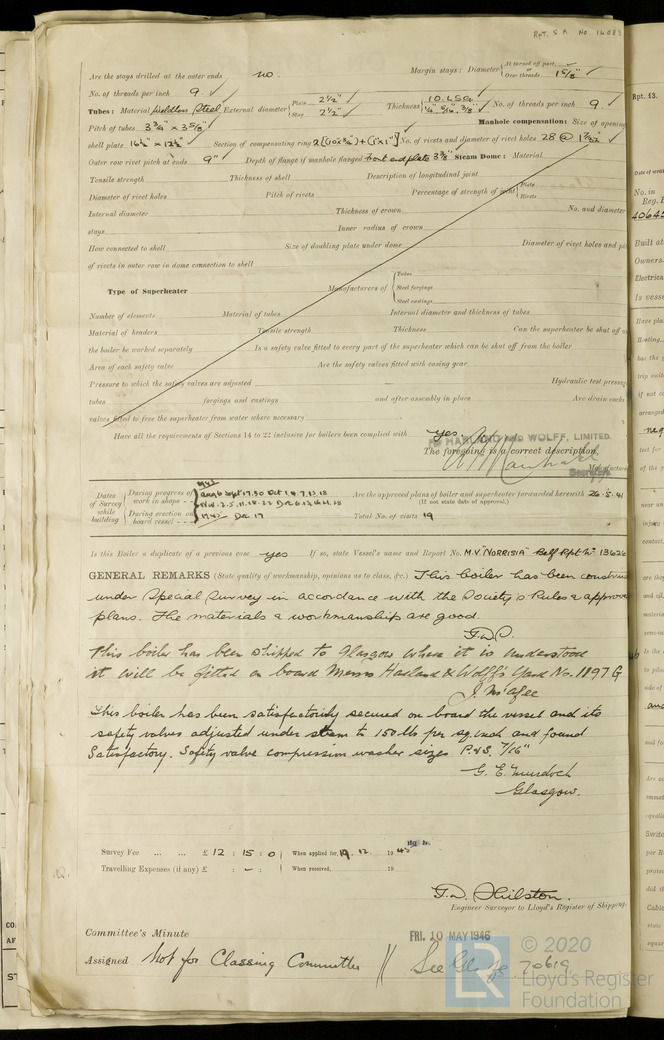 Rpt. 5A No. 14083
Are the stays drilled at the outer ends no. Margin stays: Diameter At turned off part, or Over threads 1 5/8"
No. of threads per inch 9
Tubes: Material Steel External diameter Plain 2½" Stay 2½" Thickness 10.LSG ¼" 5/16" 3/8" No. of threads per inch 9
Pitch of tubes 3¾" x 3 5/8" Manhole compensation: Size of opening
shell plate 16½" x 12½" Section of compensating ring No. of rivets and diameter of rivet holes 28 @
Outer row rivet pitch at ends 9" Depth of flange if manhole flanged front end plate 3 3/8" Steam Dome: Material
Tensile strength Thickness of shell Description of longitudinal joint
Diameter of rivet holes Pitch of rivets Percentage of strength of joint Plate Rivets
Internal diameter Thickness of crown No. and diameter
stays Inner radius of crown
How connected to shell Size of doubling plate under dome Diameter of rivet holes and
of rivets in outer row in dome connection to shell
Type of Superheater Manufacturers of Tubes Steel forgings Steel castings
Number of elements Material of tubes Internal diameter and thickness of tubes
Material of headers Tensile strength Thickness Can the superheater be shut off
the boiler be worked separately Is a safety valve fitted to every part of the superheater which can be shut off from the boiler
Area of each safety valve Are the safety valves fitted with easing gear
Pressure to which the safety valves are adjusted Hydraulic test pressure
tubes forgings and castings and after assembly in place Are drain cocks
valves fitted to free the superheater from water where necessary
Have all the requirements of Sections 14 to 22 inclusive for boilers been complied with yes.
FOR HARLAND AND WOLFF, LIMITED.
The foregoing is a correct description,
Manufacturer
Secretary
Dates of Survey while building During progress of work in shops During erection on board vessel 1945 Dec 17
Are the approved plans of boiler and superheater forwarded herewith 26.5.41
(If not state date of approval.)
Total No. of visits 19
Is this Boiler a duplicate of a previous case yes If so, state Vessel's name and Report No. M.V. "NORRISIA" Belf Rpt No 13626
GENERAL REMARKS (State quality of workmanship, opinions as to class, &c.) This boiler has been
under Special Survey in accordance with the Society's Rules &
plans. The materials & workmanship are good.
This boiler has been shipped to Glasgow where it is understood
it will be fitted on board Messrs Harland & Wolff's Yard No. 1897 G
J. McAfee
This boiler has been satisfactorily secured on board the vessel and its
safety valves adjusted under steam to 150 lbs per sq. inch and found
satisfactory. Safety valve compression washer sizes P & S. 7/16"
G. E. Murdoch
Glasgow.
Survey Fee ... ... £ 12 : 15 : 0 When applied for, 19.12.1945
Travelling Expenses (if any) £ : - : When received, 19
Engineer Surveyor to Lloyd's Register of Shipping.
Committee's Minute FRI. 10 MAY 1946
Assigned Not for Classing Committee See Glasgow 70619
© 2020
Lloyd's Register
Foundation
LR
Rpt. 13.
No. in
Reg.
Built at
Owners
Electrical
Is vessel